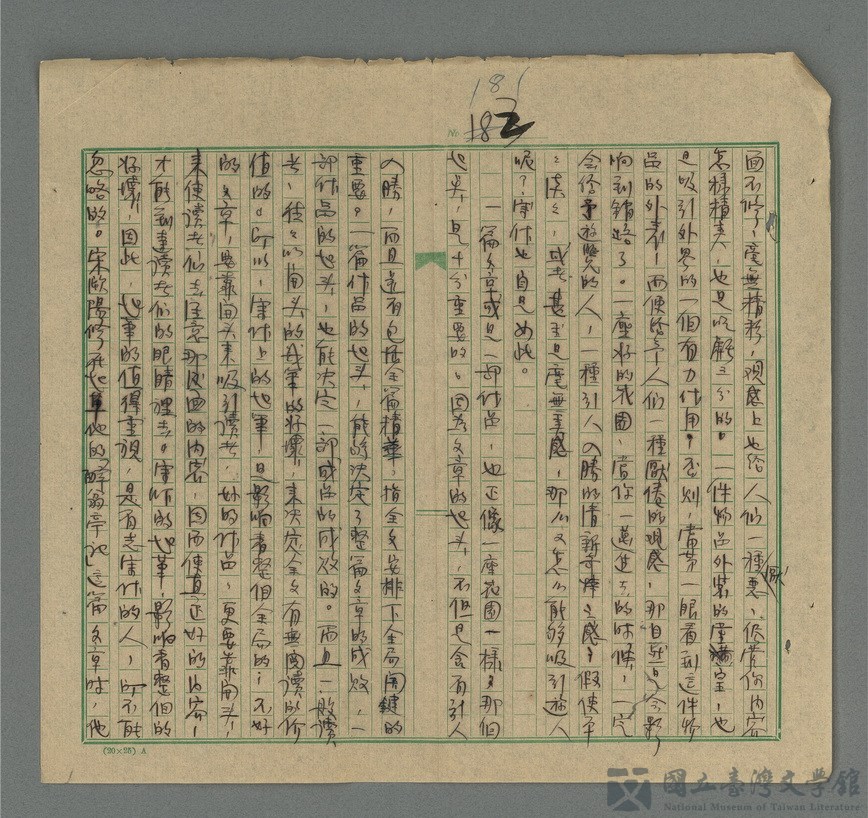 181
No 18
面不修了，毫無精彩，觀感上也給人們一種惡、任你內容
怎樣精美，也是吃虧三分的。一件物品外裝的
是吸引外界的一個有力作用，否則，當第一眼看到這件物
品的外表，而使給予人們一種厭倦的觀感，那自然是會影
响到銷路了。一座好的花園，當你一進去的時候，一定
會給予遊覽的人，一種引人入勝的清新之感，假使平
平淡淡，或者甚至是毫無美感，那麼又怎麼能夠吸引遊人
呢？寫作也自是如此。
一篇文章或是一部作品，也正像一座花園一樣。那個
起头，是十分重要的。因為文章的起头，不但是含有引人
入勝，而且還有包括全篇精華，指全文安排下全局關鍵的
重要。一篇作品的起头，能夠決定了整篇文章的成敗，一
部作品的起头，也能決定一部成品的成敗的。而且一般讀
者，往往以開头的幾筆的好壞，來決定全文有無閱讀的价
值的。所以，寫作上的起筆，是影响着整個全局的；不好
的文章，要靠開头來吸引讀者，好的作品，更要靠開头，
來使讀者们去注意那裡面的內容，因而使真正好的內容，
才能到達讀者们的眼睛裡去。寫作的起筆，影响着整個的
好壞，因此，起筆的值得重視，是有志寫作的人，所不能
忽略的。宋歐陽修在他的「醉翁亭記」這篇文章時，他
(20×25) A
國立臺灣文學館
National Museum of Taiwan Literature